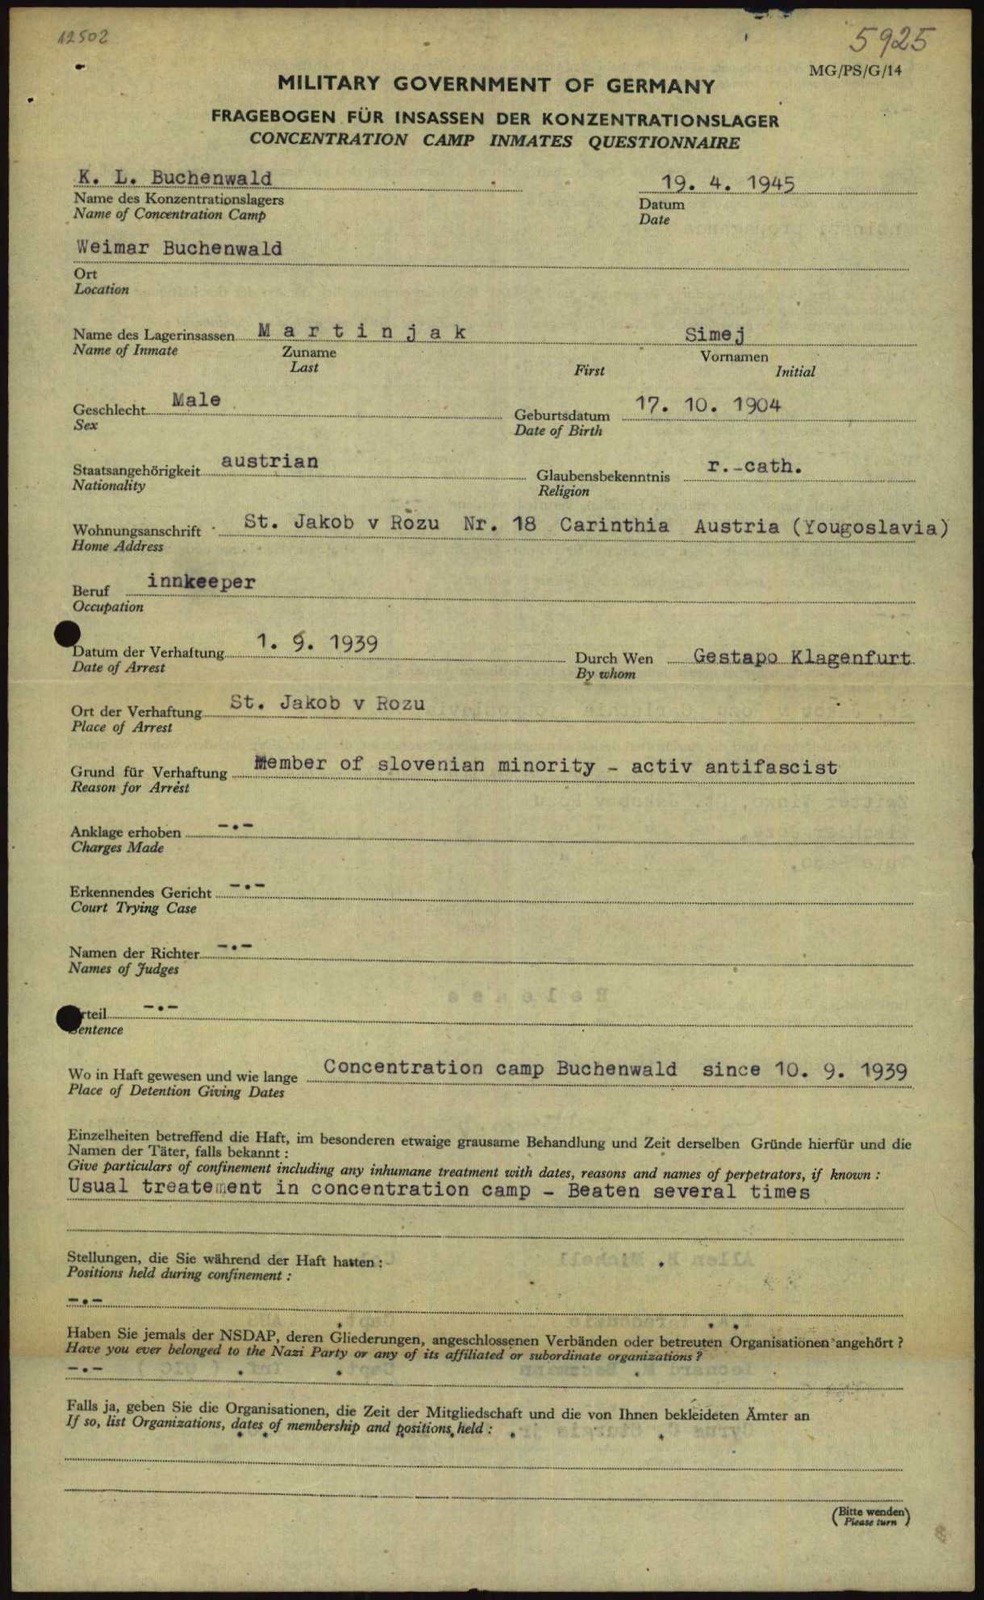 12502
5925
MG/PS/G/14
MILITARY GOVERNMENT OF GERMANY
FRAGEBOGEN FÜR INSASSEN DER KONZENTRATIONSLAGER
CONCENTRATION CAMP INMATES QUESTIONNAIRE
K. L. Buchenwald 19. 4. 1945
Name des Konzentrationslagers Datum
Name of Concentration Camp Date
Weimar Buchenwald
Ort
Location
Name des Lagerinsassen Martinjak Simej
Name of Inmate Zuname Vornamen
Last First Initial
Geschlecht Male Geburtsdatum 17. 10. 1904
Sex Date of Birth
Staatsangehörigkeit austrian Glaubensbekenntnis r.-cath.
Nationality Religion
Wohnungsanschrift St. Jakob v Rozu Nr. 18 Carinthia Austria (Yougoslavia)
Home Address
Beruf innkeeper
Occupation
Datum der Verhaftung 1. 9. 1939 Durch Wen Gestapo Klagenfurt
Date of Arrest By whom
Ort der Verhaftung St. Jakob v Rozu
Place of Arrest
Grund für Verhaftung Member of slovenian minority - activ antifascist
Reason for Arrest
Anklage erhoben -.-
Charges Made
Erkennendes Gericht -.-
Court Trying Case
Namen der Richter -.-
Names of Judges
rteil -.-
entence
Wo in Haft gewesen und wie lange Concentration camp Buchenwald since 10. 9. 1939
Place of Detention Giving Dates
Einzelheiten betreffend die Haft, im besonderen etwaige grausame Behandlung und Zeit derselben Gründe hierfür und die
Namen der Täter, falls bekannt :
Give particulars of confinement including any inhumane treatment with dates, reasons and names of perpetrators, if known :
Usual treatement in concentration camp - Beaten several times
Stellungen, die Sie während der Haft hatten :
Positions held during confinement :
-.-
Haben Sie jemals der NSDAP, deren Gliederungen, angeschlossenen Verbänden oder betreuten Organisationen angehört ?
Have you ever belonged to the Nazi Party or any of its affiliated or subordinate organizations ?
-.-
Falls ja, geben Sie die Organisationen, die Zeit der Mitgliedschaft und die von Ihnen bekleideten Ämter an
If so, list Organizations, dates of membership and positions held :
(Bitte wenden)
(Please turn)